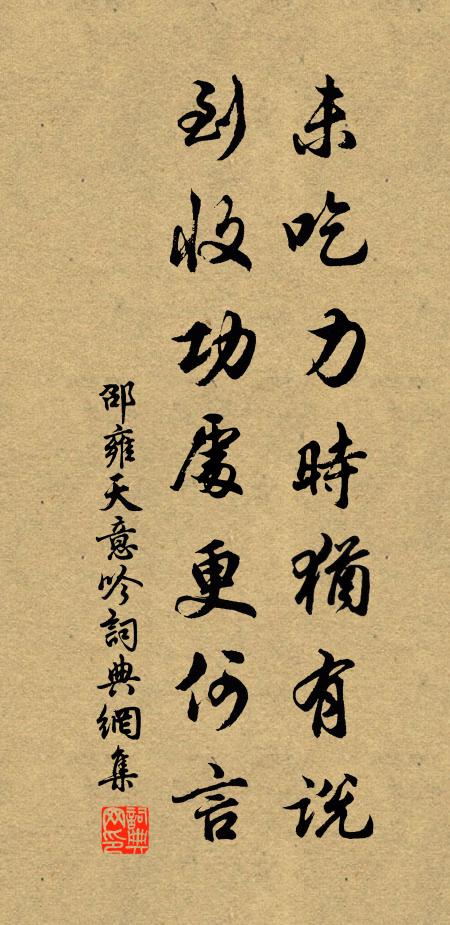 未吃力時猶有說
到收功處更何言
邵雍天意吟詞典網集
詞典網印